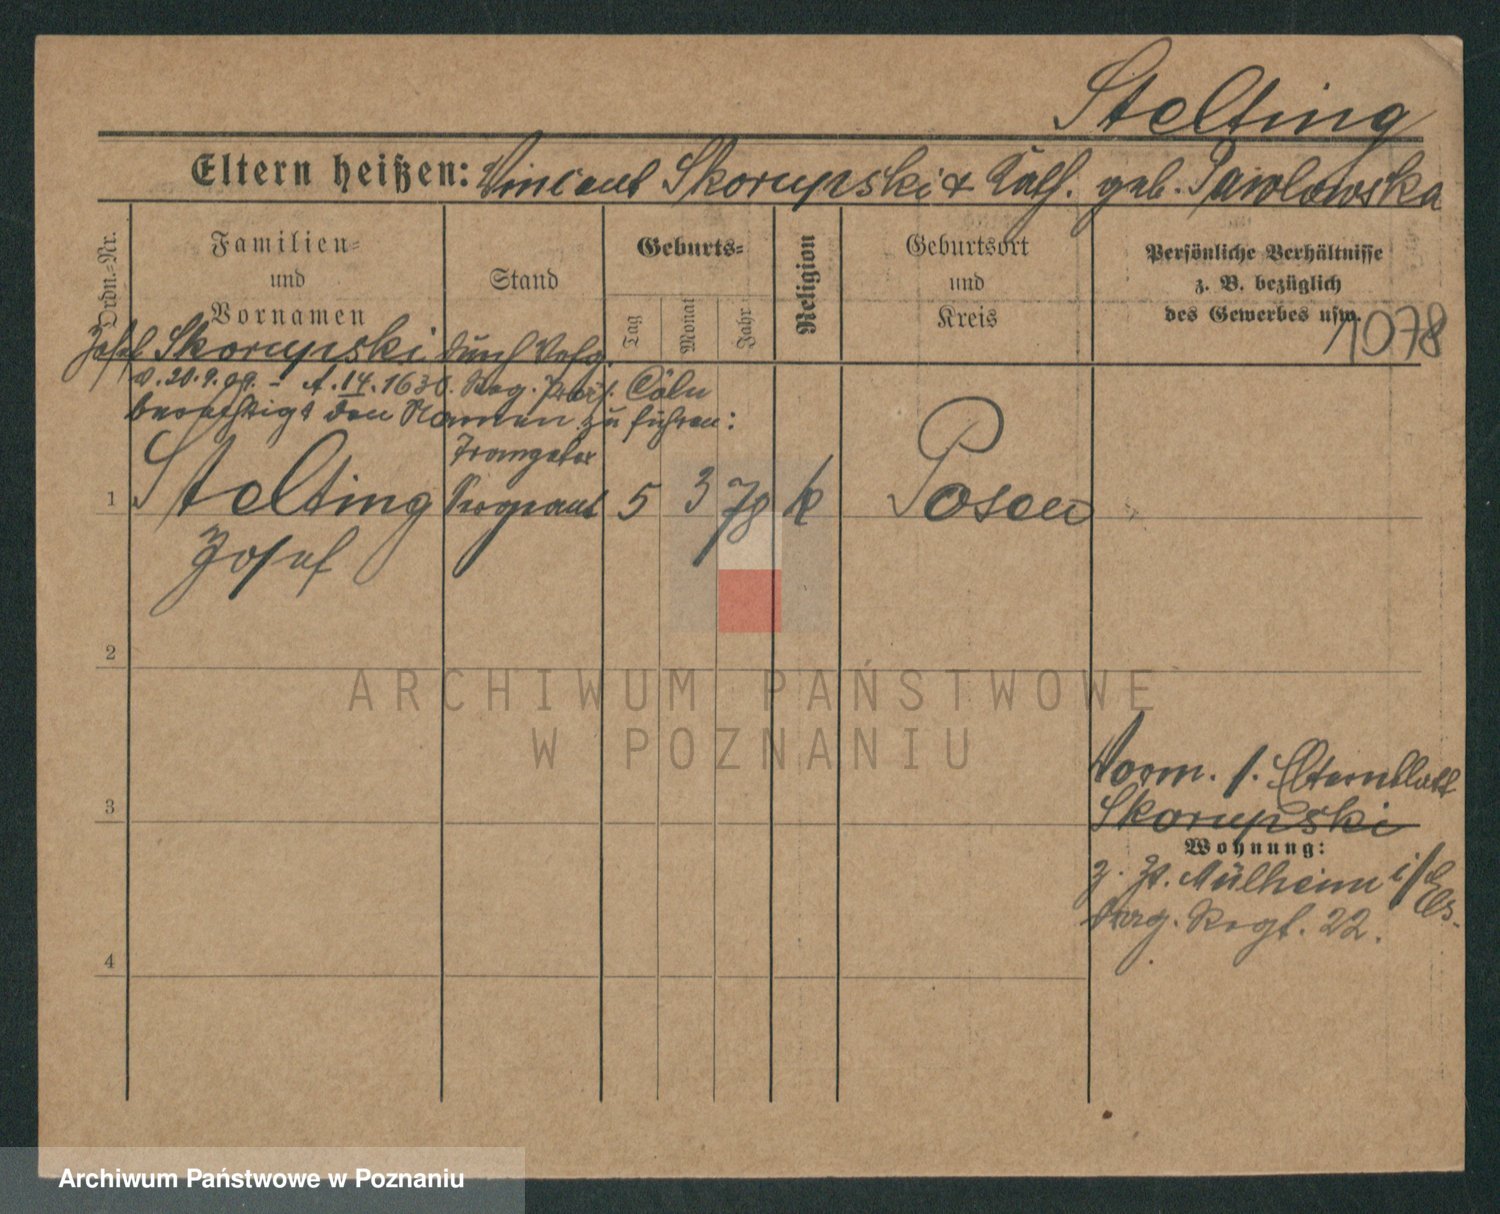 Stelting
Eltern heißen: Vincent Skorupski & Kath. geb. Pawlowska
Ordn.-Nr.
Familien-
und
Vornamen
Stand
Geburts-
Tag
Monat
Jahr
Religion
Geburtsort
und
Kreis
Persönliche Verhältnisse
z. B. bezüglich
des Gewerbes usw.
1078
Josef Skorupski durch Vfg.
v. 20.9.09. - A.14.1630. Reg. Präs. Cöln
berechtigt den Namen zu führen:
1 Stelting Sergeant 5 3 78 k Posen
Josef
2
3
4
Vorm. s. Elternblatt
Skorupski
Wohnung:
z. Zt. Mülheim i/Els.
Regt. 22.
ARCHIWUM PAŃSTWOWE
W POZNANIU
Archiwum Państwowe w Poznaniu